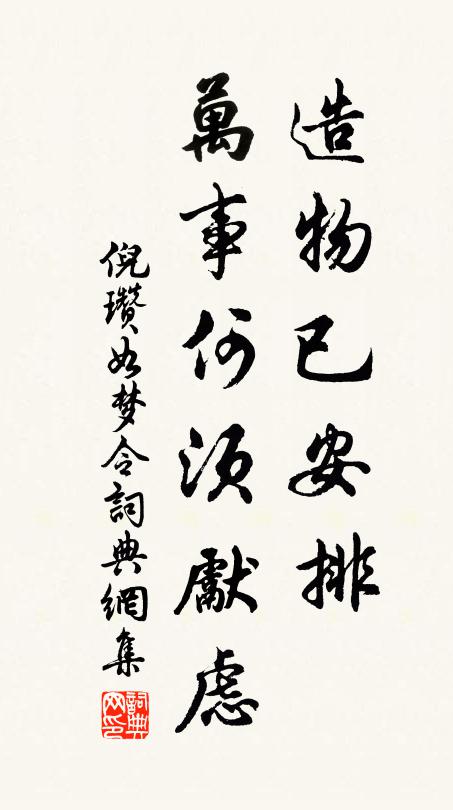 造物已安排
萬事何須獻慮
倪瓚如梦令詞典網集
詞典网印